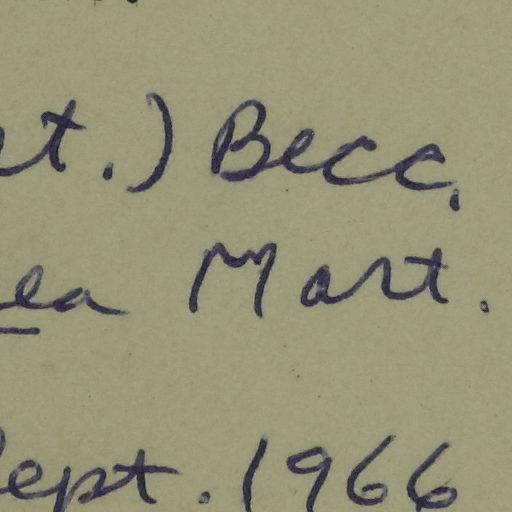 t.) Becc.
ea Mart.
Sept. 1966